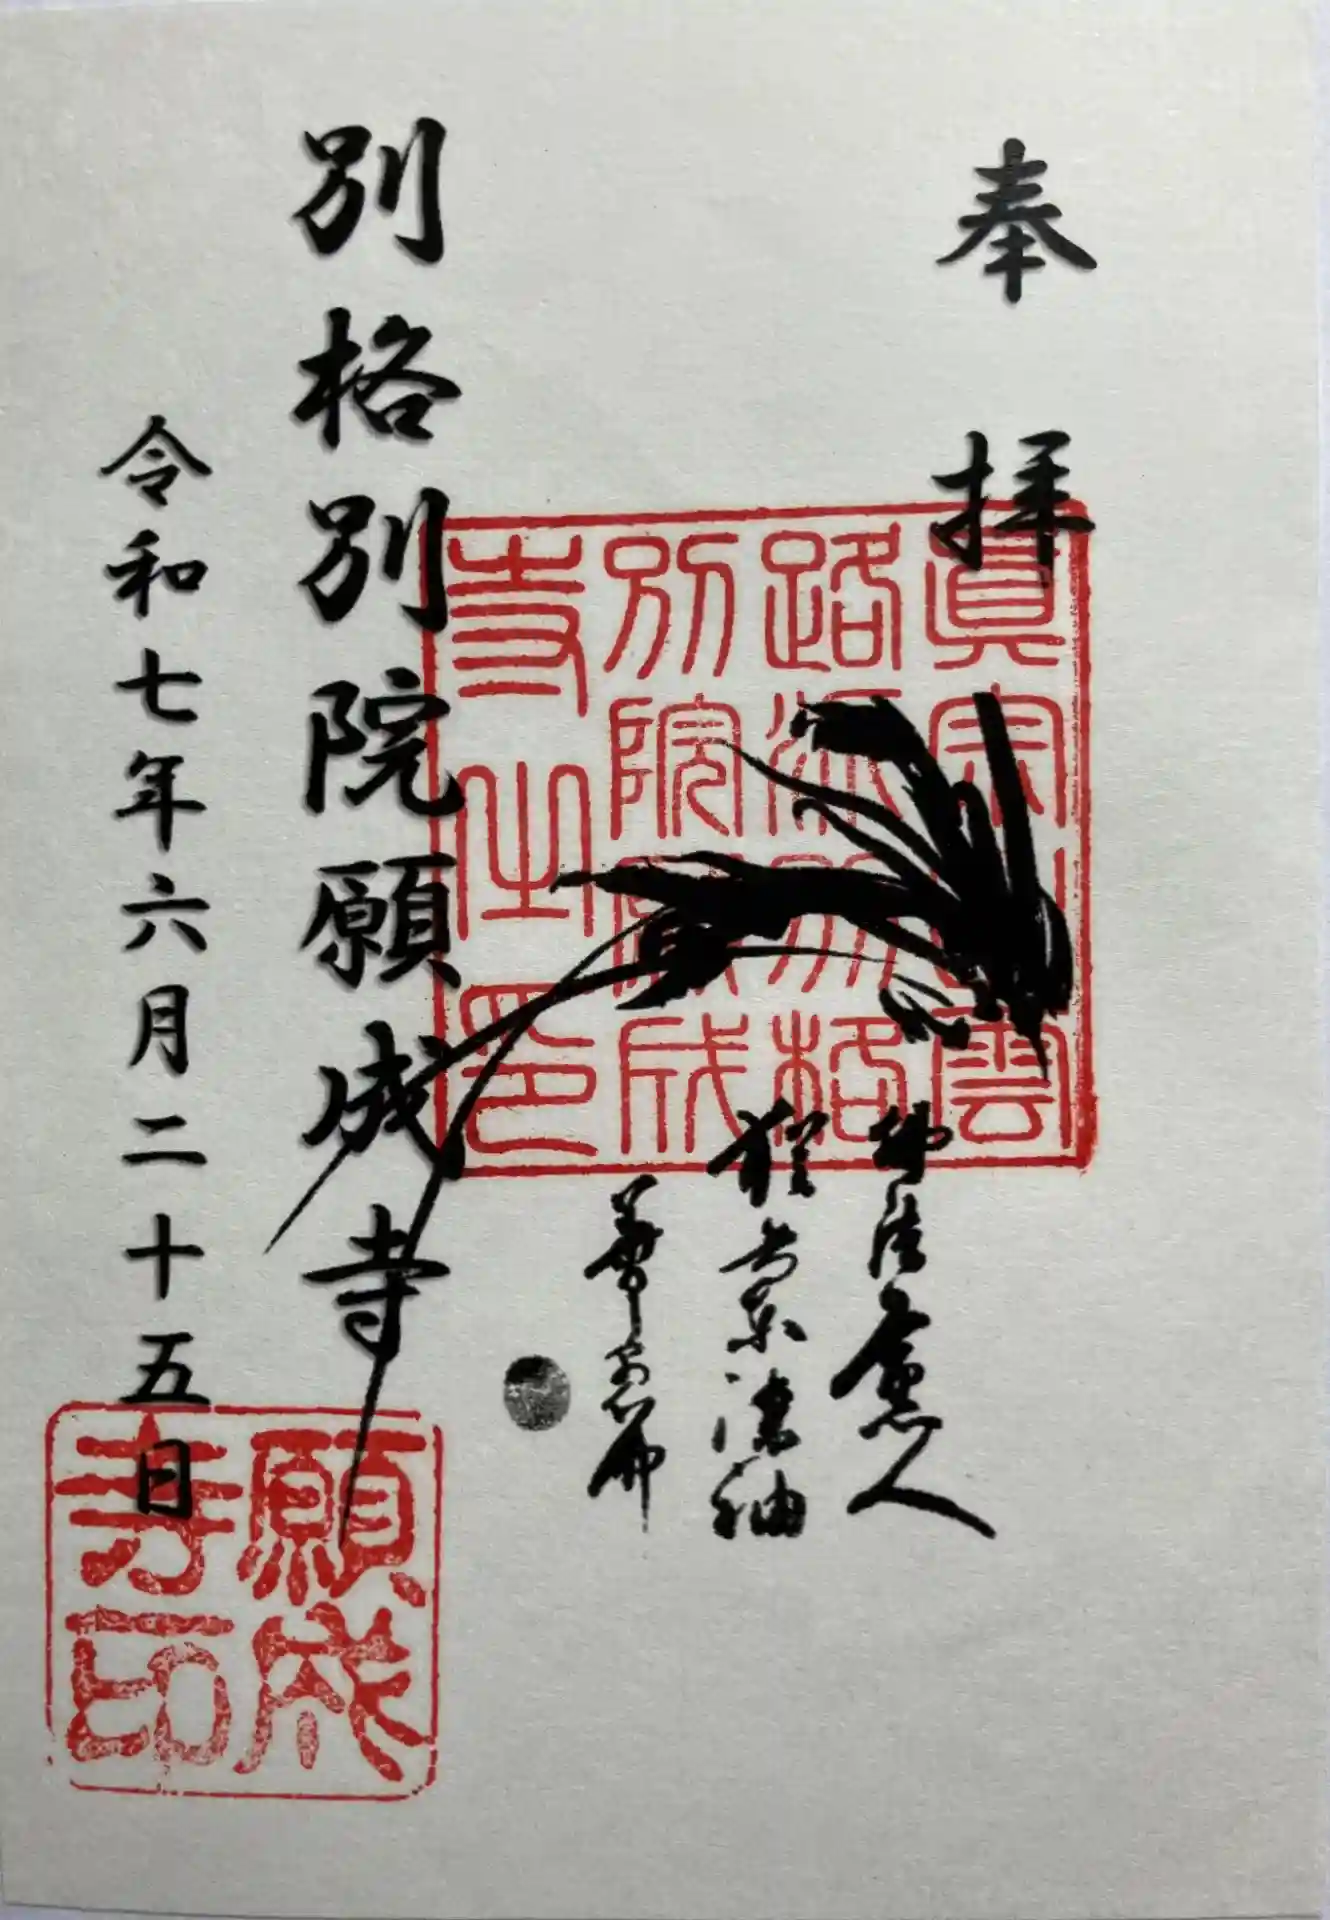 奉拝
真宗出雲
路派別格
別院願成
寺之印
別格別院願成寺
令和七年六月二十五日
願成
寺印